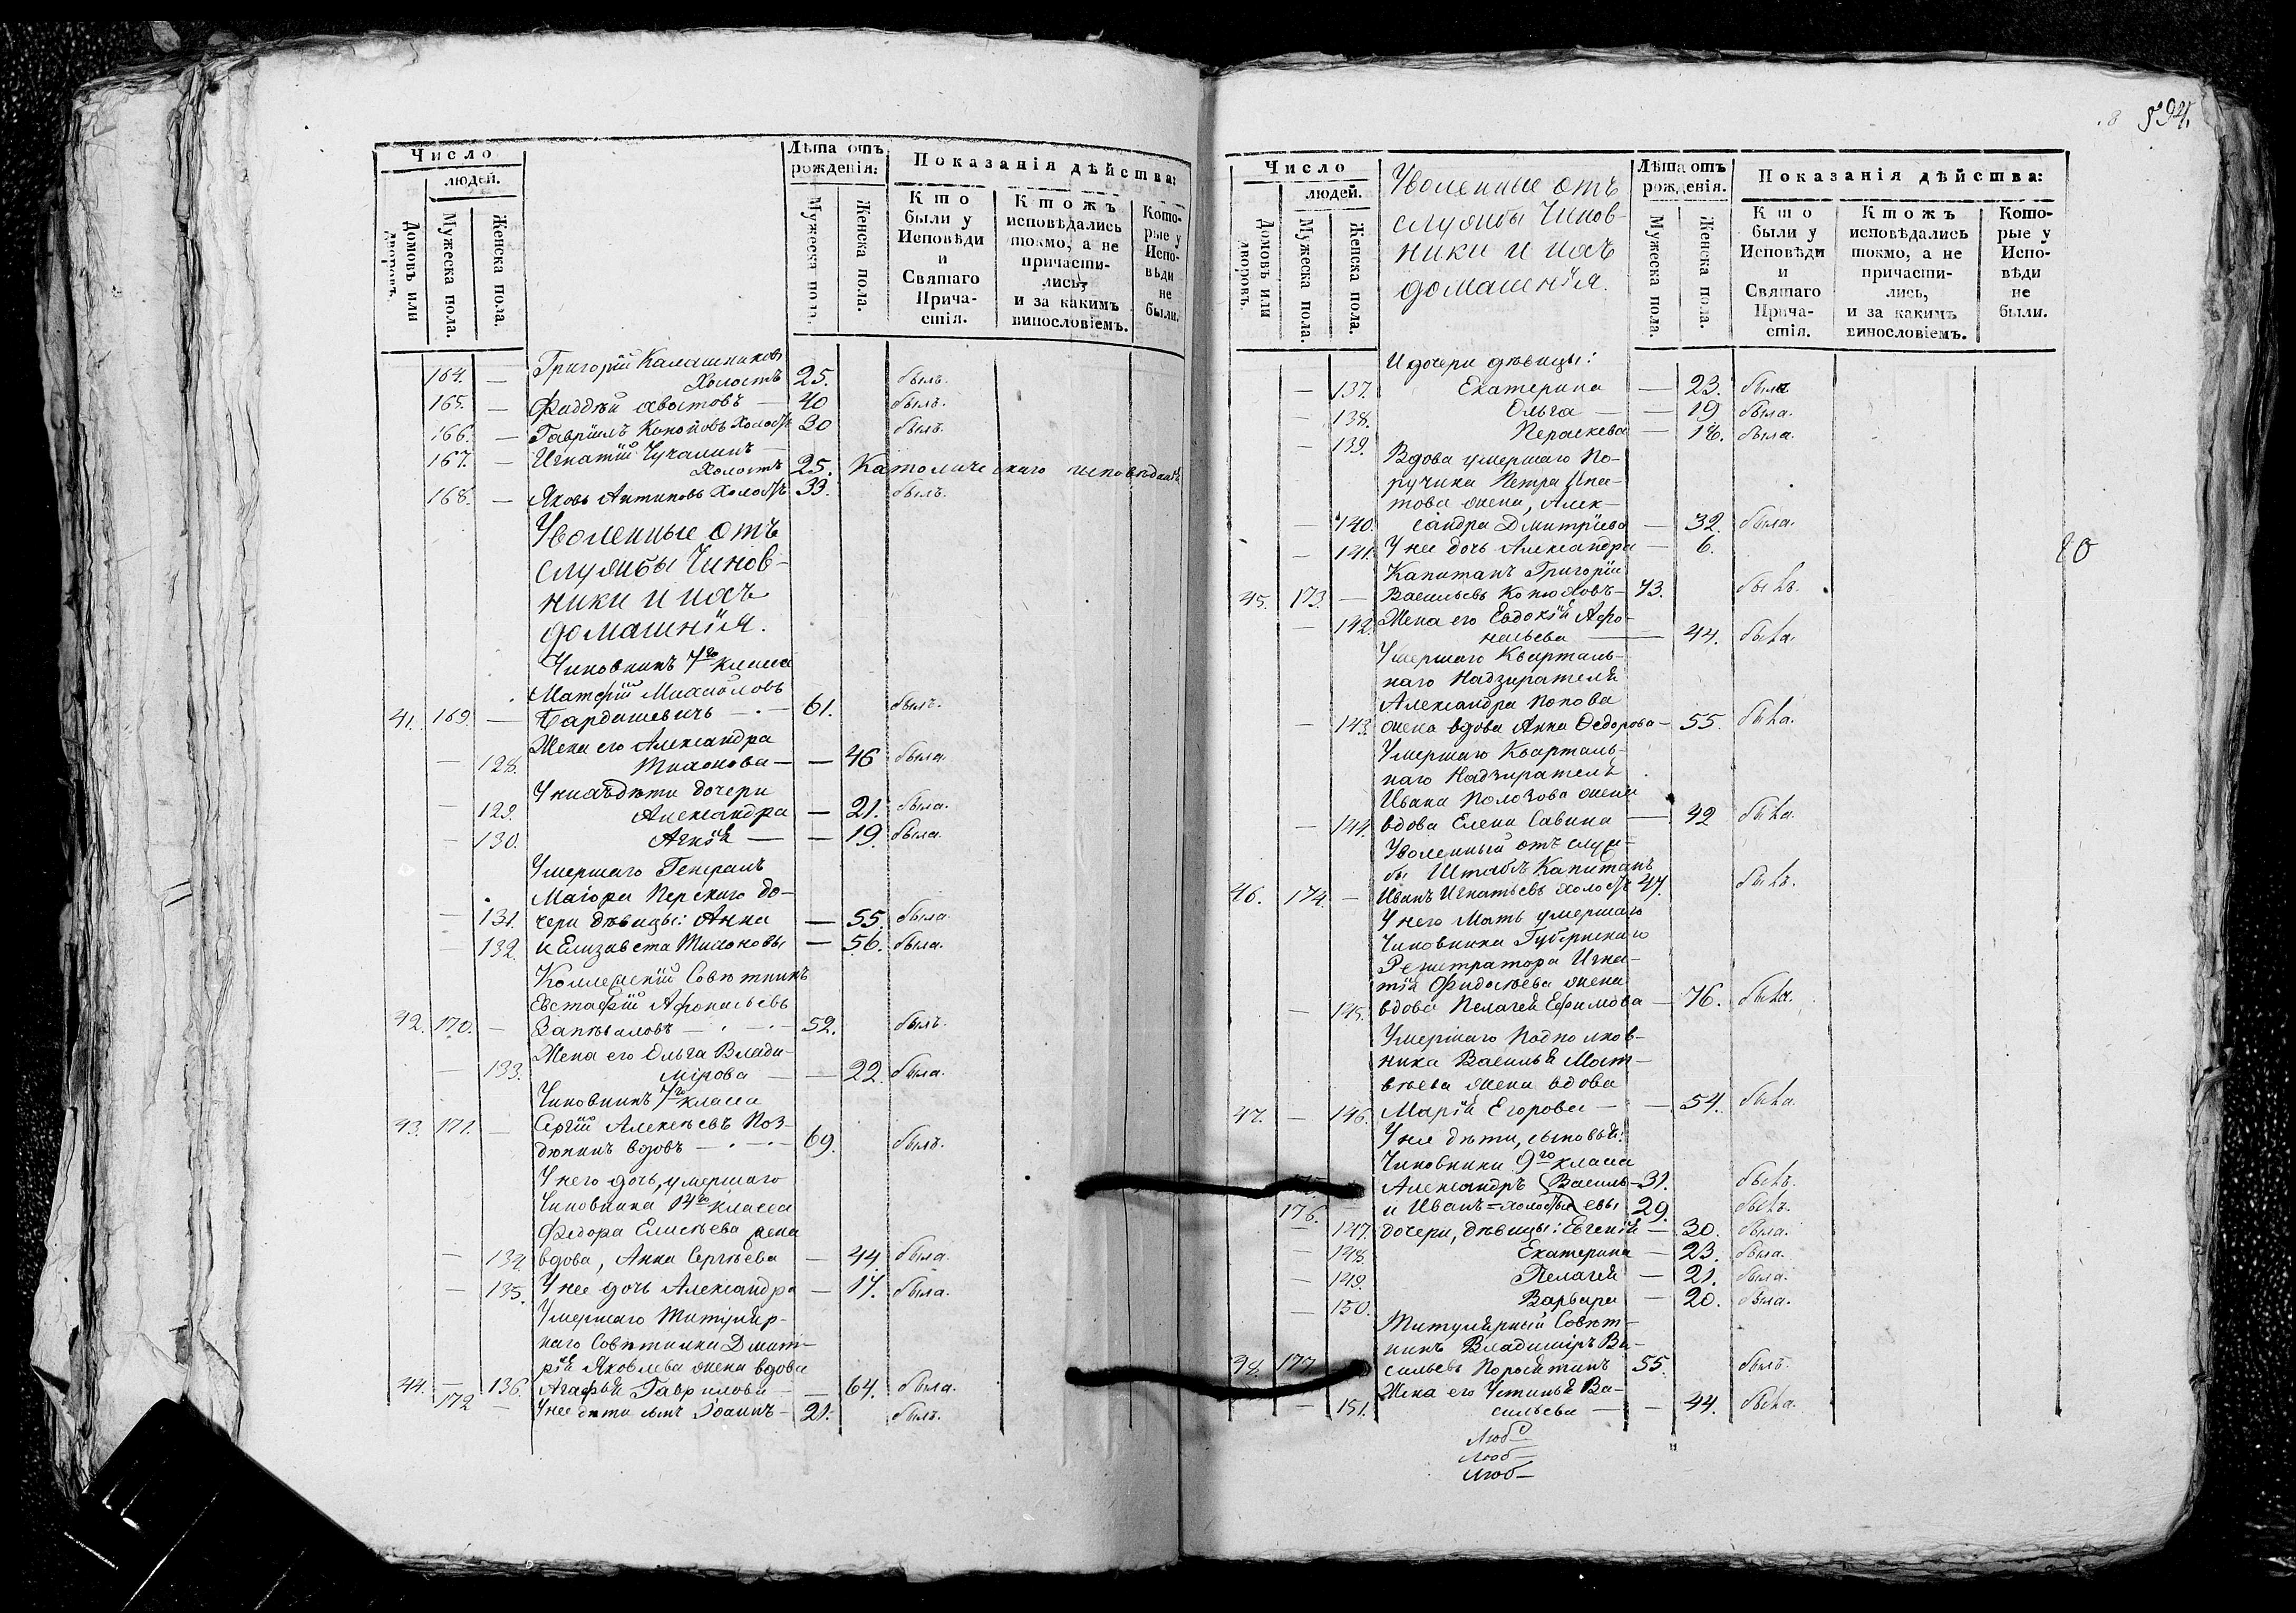 Число
людей.
Домовъ или дворовъ.
Мужеска пола.
Женска пола.
Лѣта отъ рожденія:
Мужеска пола.
Женска пола.
Показанія дѣйства:
Кто были у Исповѣди и Святаго Прича-стія.
Ктожъ исповѣдались токмо, а не причасти-лись, и за какимъ винословіемъ.
Кото-рые у Испо-вѣди не были.
164. — Григорій Калашниковъ
Холостъ 25. былъ.
165. — Фаддѣй — 40 былъ.
166. — Гавріилъ Кононовъ Холостъ 30 былъ.
167. — Игнатій
Холостъ 25. Католическаго исповѣданія
168. — Яковъ Антиповъ Холостъ 33. былъ.
Уволенные отъ
службы Чинов-
ники и ихъ
домашнія.
Чиновникъ 7го класса
Матфій Михайловъ
41. 169. — Бардишевичь — 61. былъ.
Жена его Александра
— 128. Тихонова — — 46 была.
У нихъ дѣти дочери
— 129. Александра — 21. была.
— 130. Агнія — — 19. была.
Умершаго Генералъ
Маіора Перскаго до-
— 131. чери дѣвицы: Анна — 55. была
— 132. и Елизавета Тихоновы — 56. была.
Коллежскій Совѣтникъ
Евстафій Афонасьевъ
42. 170. — — 52. былъ.
Жена его Ольга Влади-
— 133. мірова — — 22. была.
Чиновникъ 7го класса
43. 171. — Сергій Алексѣевъ Поз-
дюнинъ вдовъ — 69. былъ.
У него дочь, умершаго
Чиновника 14го класса
Федора Елисѣева жена
— 134. вдова, Анна Сергѣева — 44 была.
— 135. У нее дочь Александра — 17. была.
Умершаго Титуляр-
наго Совѣтника Дмит-
рія Яковлева жена вдова
44. — 136. Агафья Гаврилова — — 64. была.
172 — У нее дѣти сынъ Іоаннъ — 21. былъ.
594.
Число
людей.
Домовъ или дворовъ.
Мужеска пола.
Женска пола.
Уволенные отъ
службы Чинов-
ники и ихъ
домашнія.
Лѣта отъ рожденія.
Мужеска пола.
Женска пола.
Показанія дѣйства:
Кто были у Исповѣди и Святаго Прича-стія.
Ктожъ исповѣдались токмо, а не причасти-лись, и за какимъ винословіемъ.
Кото-рые у Испо-вѣди не были.
И дочери дѣвицы:
— 137. Екатерина — 23. была
— 138. Ольга — — 19 была.
— 139. Параскева — 16. была.
Вдова умершаго По-
ручика Петра Ипа-
това жена, Алек-
— 140. сандра Дмитріева — 32. была.
— 141. У нее дочь Александра — 6.
Капитанъ Григорій
45. 173. — Васильевъ Конюховъ — 73. былъ.
— 142. Жена его Евдокія Афо-
насьева — 44. была.
Умершаго Кварталь-
наго Надзирателя
Александра Попова
— 143. жена вдова Анна Федорова — 55. была.
Умершаго Кварталь-
наго Надзирателя
Ивана Полозова жена
— 144. вдова Елена Савина — 42 была.
Уволенный отъ служ-
бы Штабсъ Капитанъ
46. 174. — Иванъ Игнатьевъ холостъ 47. былъ.
У него Мать умершаго
Чиновника Губернскаго
Регистратора Игна-
тія жена
— 145. вдова Пелагея Ефимова — 76. была.
Умершаго Подполков-
ника Василья Мат-
вѣева жена вдова
47. — 146. Марія Егорова — — 54. была.
У нее дѣти, сыновья:
Чиновники 9го класса
Александръ Василь- 31. былъ.
176. — и Иванъ = холостыя евы 29. былъ.
— 147. дочери, дѣвицы: Евгенія — 30. была.
— 148. Екатерина — 23. была.
— 149. Пелагея — 21. была.
— 150. Варвара — 20. была.
Титулярный Совѣт-
никъ Владиміръ Ва-
48. 177 сильевъ 55. былъ.
Жена его Устинья Ва-
— 151. сильева — — 44. была.
Люб—
Люб—
Люб—